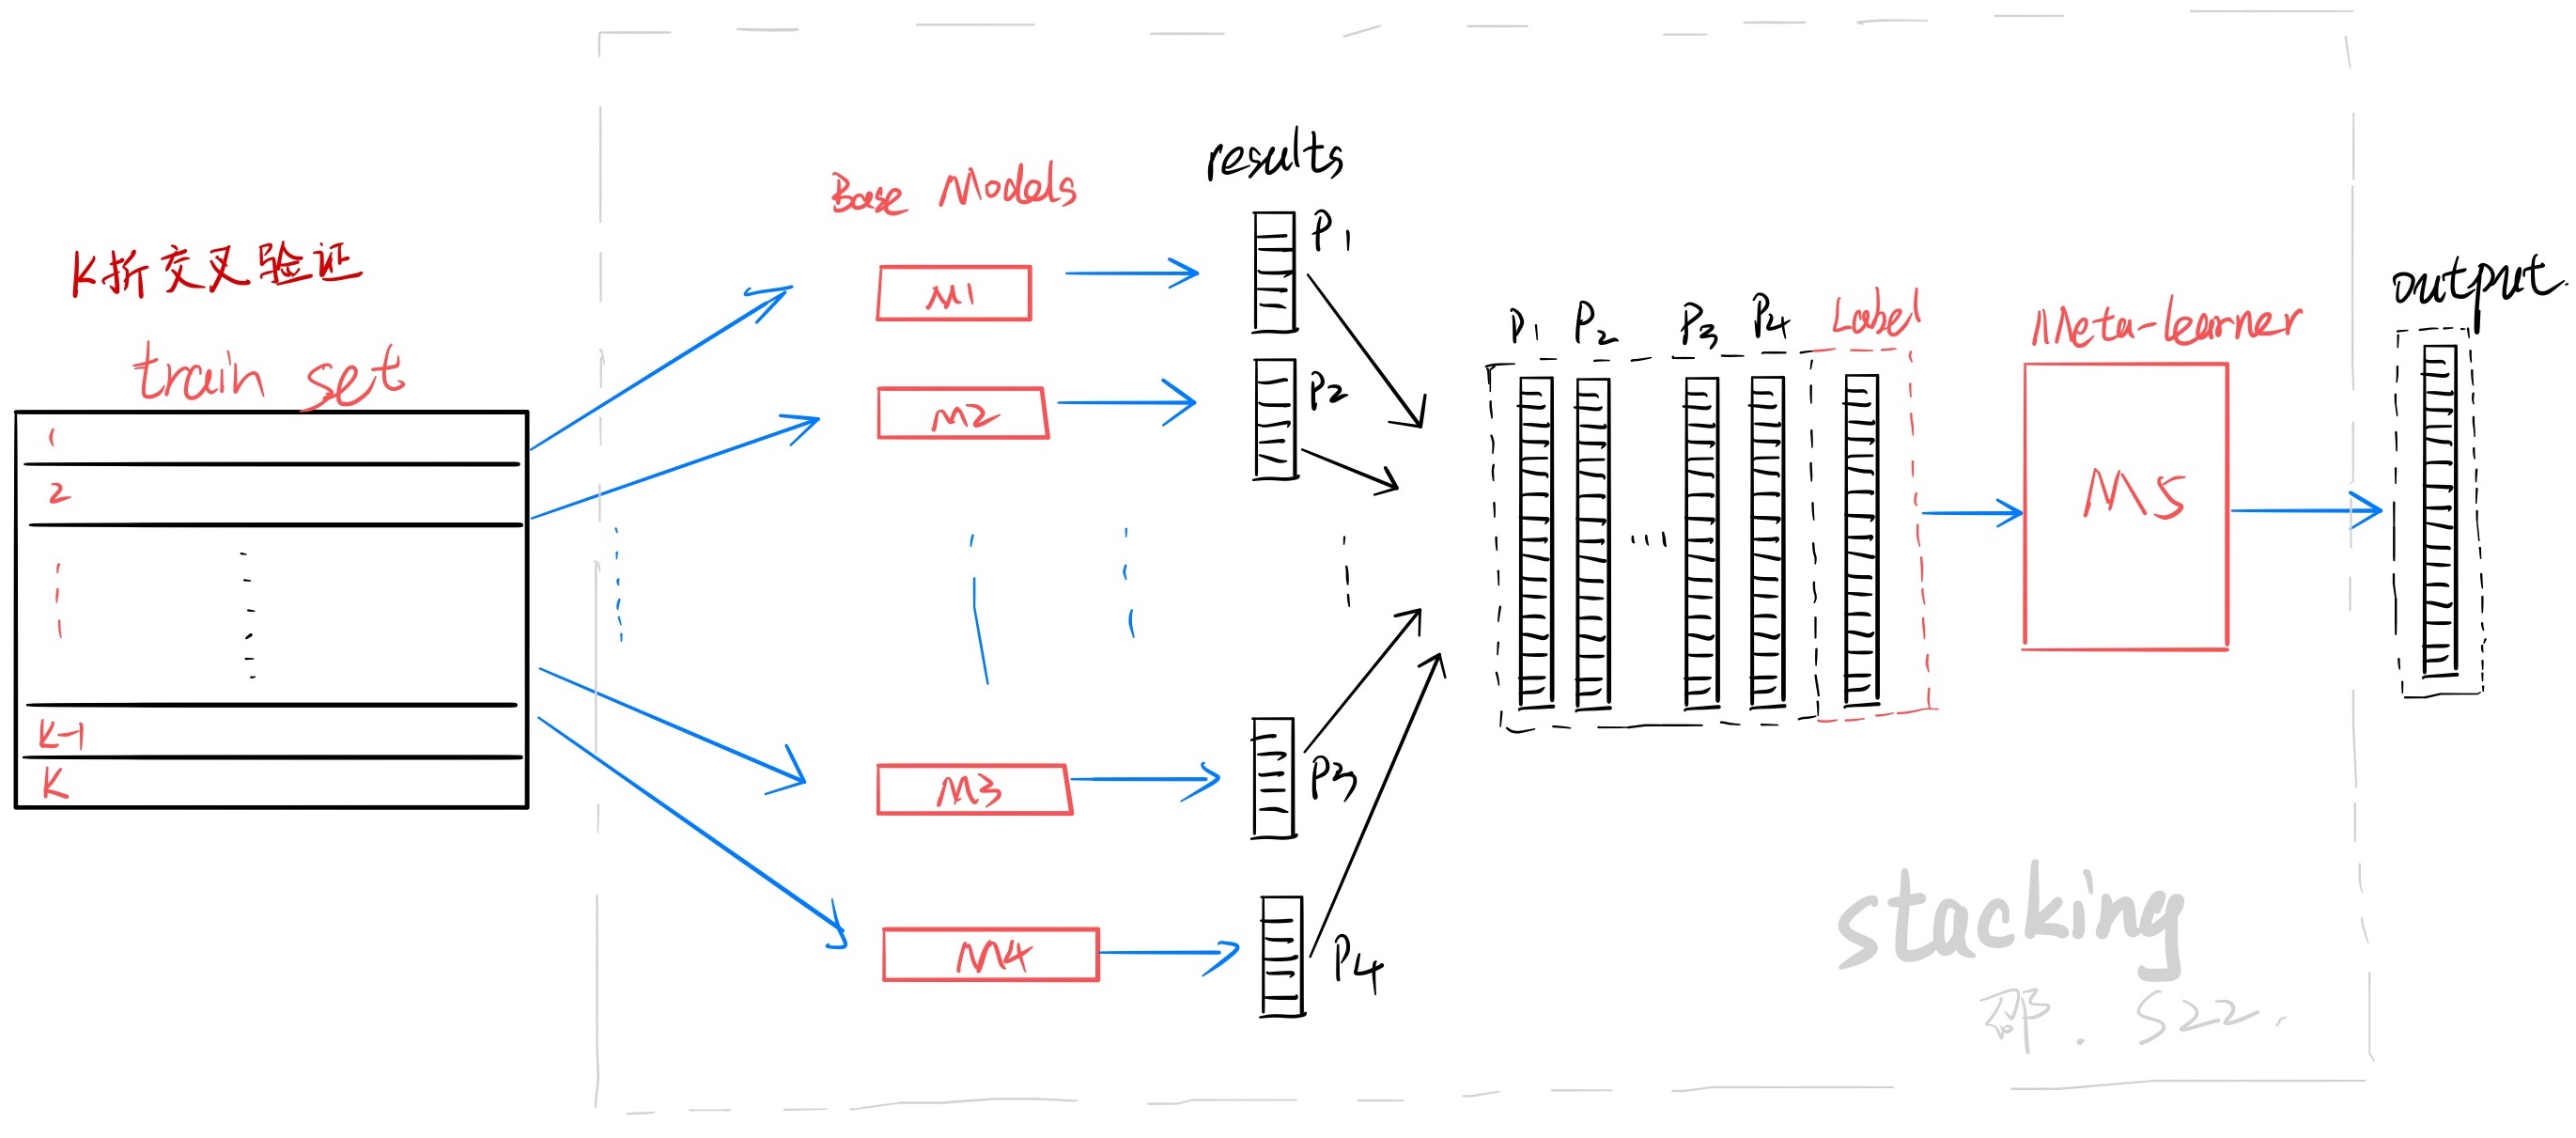 K折交叉验证
train set
1
2
K-1
K
Base Models
M1
M2
M3
M4
results
P1
P2
P3
P4
P1 P2 ... P3 P4 Label
Meta-learner
M5
output.
stacking
邵. S22.